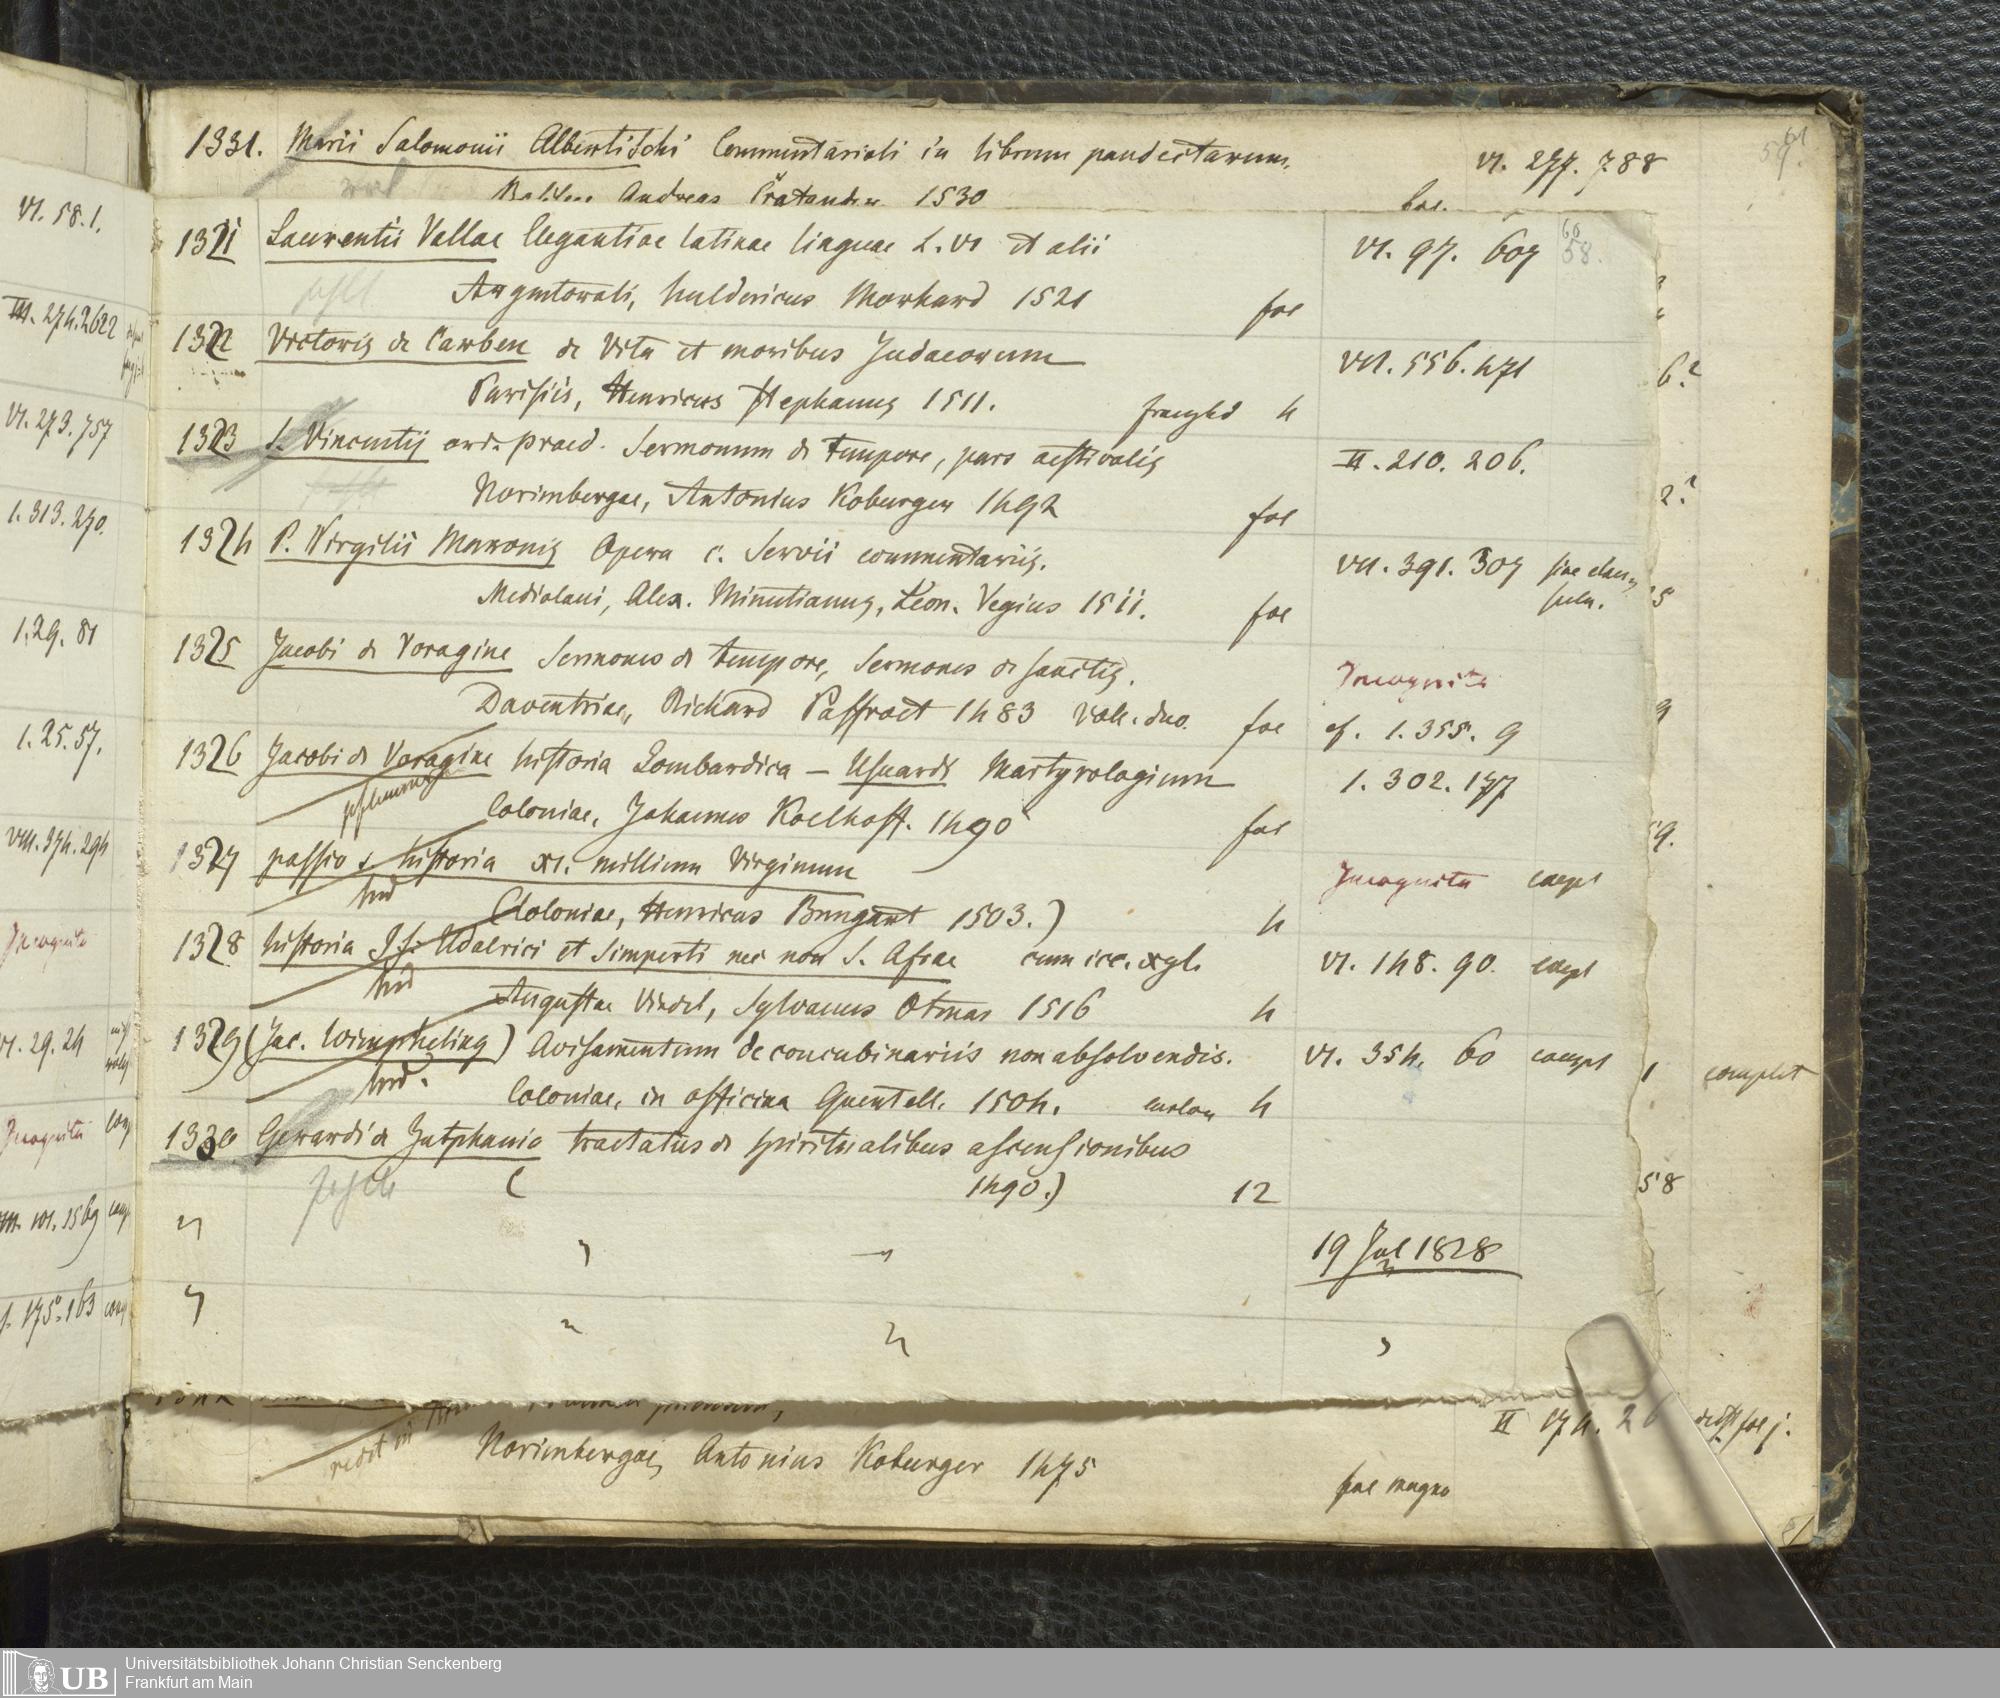 61
59.
1331. Marii Salomonii Albertischi Commentarioli in librum pandectarum. VI. 277. 788
Basileae Andreas Cratander 1530 fol.
60
58.
1321 Laurentii Vallae Elegantiae latinae linguae L. VI et alii VI. 97. 607
Huldericus Morhard 1521 fol
1322 Victoris de Carben de Vita et moribus Judaeorum VII. 556. 471
Parisiis, Henricus Stephanus 1511. 4
1323 S. Vincentij ord. praed. Sermonum de tempore, pars aestivalis II. 210. 206.
Norimbergae, Antonius Koburger 1492 fol
1324 P. Virgilii Maronis Opera c. Servii commentariis. VII. 391. 307
Mediolani, Alex. Minutianus, Leon. Vegius 1511. fol
1325 Jacobi de Voragine Sermones de tempore, Sermones de sanctis. Incognita
Daventriae, Richard Paffraet 1483 vol. duo. fol cf. 1. 355. 9
1326 Jacobi de Voragine historia Lombardica – Usuardi Martyrologium 1. 302. 177
Coloniae, Johannes Koelhoff. 1490 fol
1327 passio s. historia XI. millium Virginum Incognita compl
Coloniae, Henricus Bungart 1503.) 4
1328 historia S.S. Udalrici et Simperti nec non S. Afrae cum icc. xyl. VI. 148. 90. compl
Augustae Vindel, Sylvanus Otmar 1516 4
1329 (Jac. Wimpheling) Avisamentum de concubinariis non absolvendis. VI. 354. 60 compl
Coloniae, in officina Quentell. 1504. 4
1330 Gerardi de Zutphania tractatus de spiritualibus ascensionibus
( 1490.) 12
19 Jul 1828
Norimbergae, Antonius Koburger 1475 fol magno
VI. 58. 1.
III. 274. 2622
VI. 273. 757
1. 313. 270.
1. 29. 81
1. 25. 57.
VIII. 374. 294
Incognita
VI. 29. 24
Incognita
complet
58
UB
Universitätsbibliothek Johann Christian Senckenberg
Frankfurt am Main